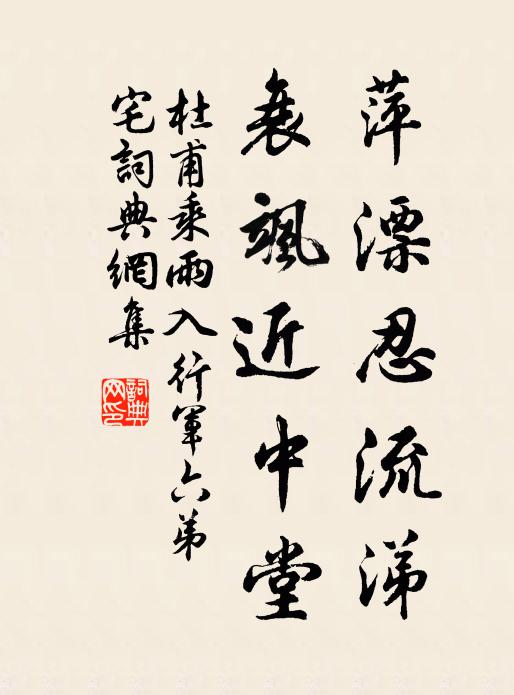 萍漂忍流涕
衰颯近中堂
杜甫乘雨入行軍六弟
宅詞典網集
詞典
网印